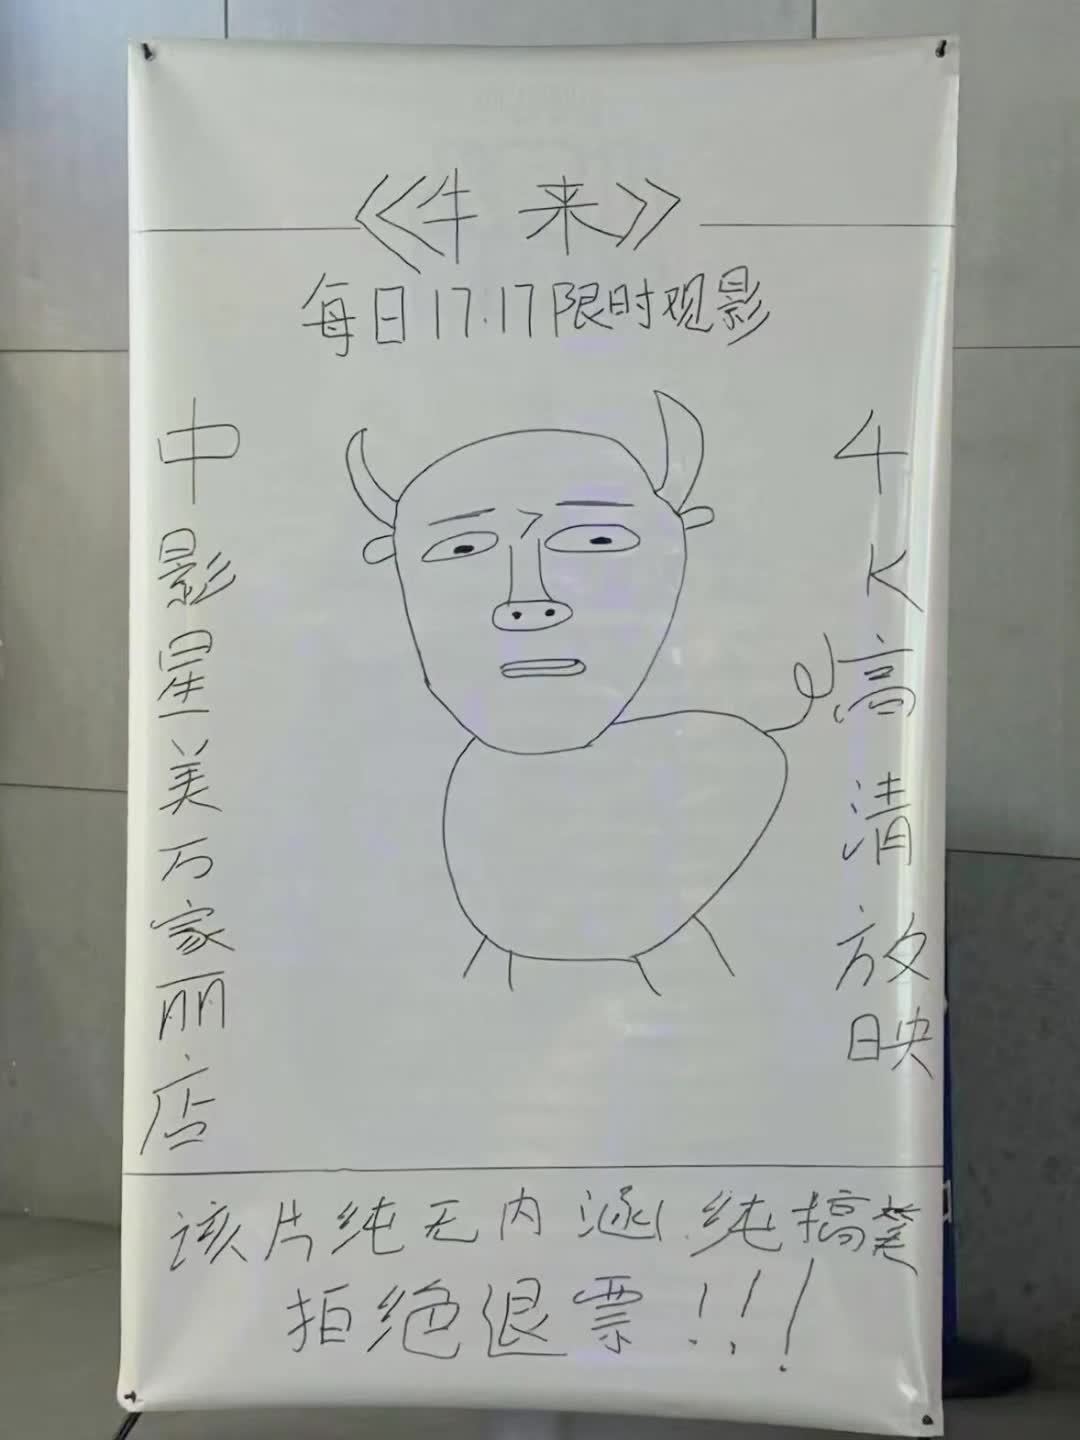 《牛来》
每日17.17限时观影
中影星美万家丽店
4K高清放映
该片纯无内涵.纯搞
拒绝退票!!!